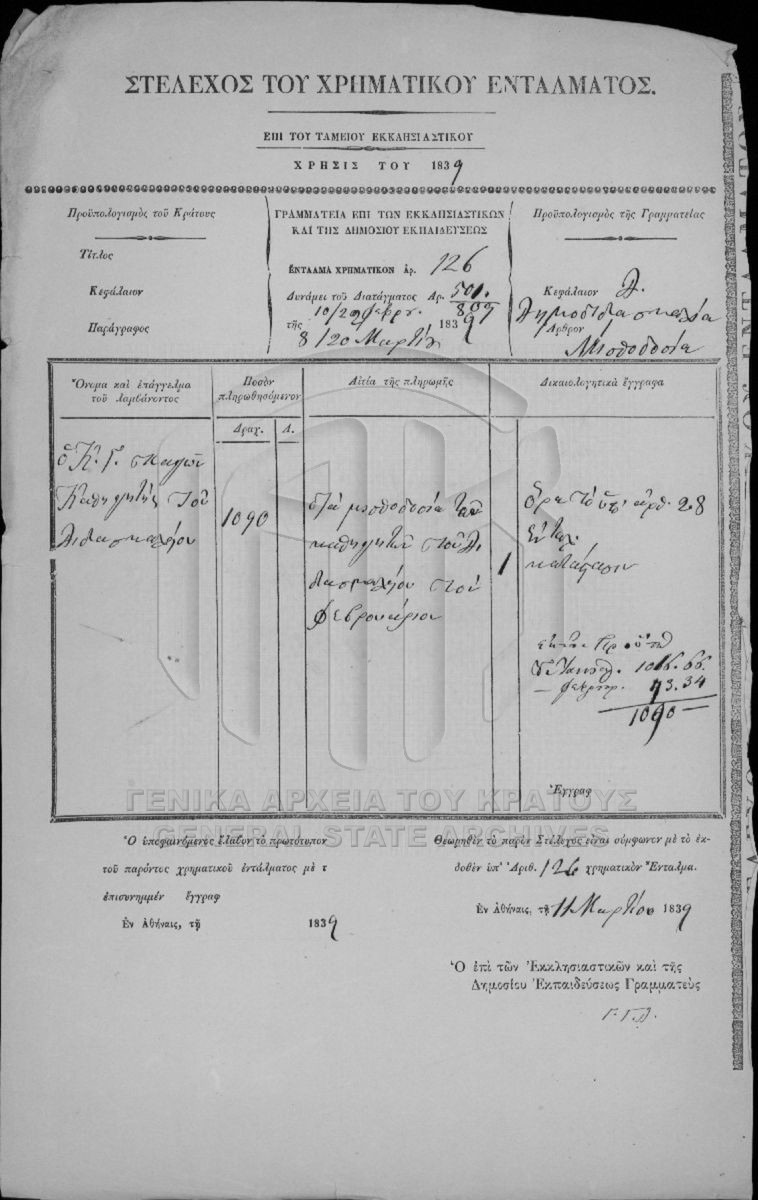 ΣΤΕΛΕΧΟΣ ΤΟΥ ΧΡΗΜΑΤΙΚΟΥ ΕΝΤΑΛΜΑΤΟΣ.
ΕΠΙ ΤΟΥ ΤΑΜΕΙΟΥ ΕΚΚΛΗΣΙΑΣΤΙΚΟΥ
ΧΡΗΣΙΣ ΤΟΥ 1839
Προϋπολογισμὸς τοῦ Κράτους
Τίτλος
Κεφάλαιον
Παράγραφος
ΓΡΑΜΜΑΤΕΙΑ ΕΠΙ ΤΩΝ ΕΚΚΛΗΣΙΑΣΤΙΚΩΝ
ΚΑΙ ΤΗΣ ΔΗΜΟΣΙΟΥ ΕΚΠΑΙΔΕΥΣΕΩΣ
ΕΝΤΑΛΜΑ ΧΡΗΜΑΤΙΚΟΝ ἀρ. 126
Δυνάμει τοῦ Διατάγματος Αρ. 501.
809
10/29 Φεβρ.
τῆς 1839
8/20 Μαρτίου
Προϋπολογισμὸς τῆς Γραμματείας
Κεφάλαιον Δ.
Δημοδιδασκαλία
Ἄρθρον
Μισθοδοσία
Ὄνομα καὶ ἐπάγγελμα
τοῦ λαμβάνοντος
Ποσὸν
πληρωθησόμενον
Δραχ. Λ.
Αἰτία τῆς πληρωμῆς
Δικαιολογητικὰ ἔγγραφα
ὁ Κ. Γ.
Καθηγητὴς τοῦ
Διδασκαλείου
1090
διὰ μισθοδοσίαν τῶν
καθηγητῶν τοῦ Δι
δασκαλείου τοῦ
Φεβρουαρίου
1
ὅρα τὸ ὑπ' ἀρθ. 28
ἐντ.
κατάστασιν
1016.66.
73.34
1090 —
Ἔγγραφ
ΓΕΝΙΚΑ ΑΡΧΕΙΑ ΤΟΥ ΚΡΑΤΟΥΣ
GENERAL STATE ARCHIVES
Ὁ ὑποφαινόμενος ἔλαβον τὸ πρωτότυπον
τοῦ παρόντος χρηματικοῦ ἐντάλματος μὲ τ
ἐπισυνημμέν ἔγγραφ
Ἐν Ἀθήναις, τῇ 1839
Θεωρηθὲν τὸ παρὸν Στέλεχος εἶναι σύμφωνον μὲ τὸ ἐκ-
δοθὲν ὑπ' Ἀριθ. 126 χρηματικὸν Ἔνταλμα.
Ἐν Ἀθήναις, τῇ 11 Μαρτίου 1839
Ὁ ἐπὶ τῶν Ἐκκλησιαστικῶν καὶ τῆς
Δημοσίου Ἐκπαιδεύσεως Γραμματεὺς